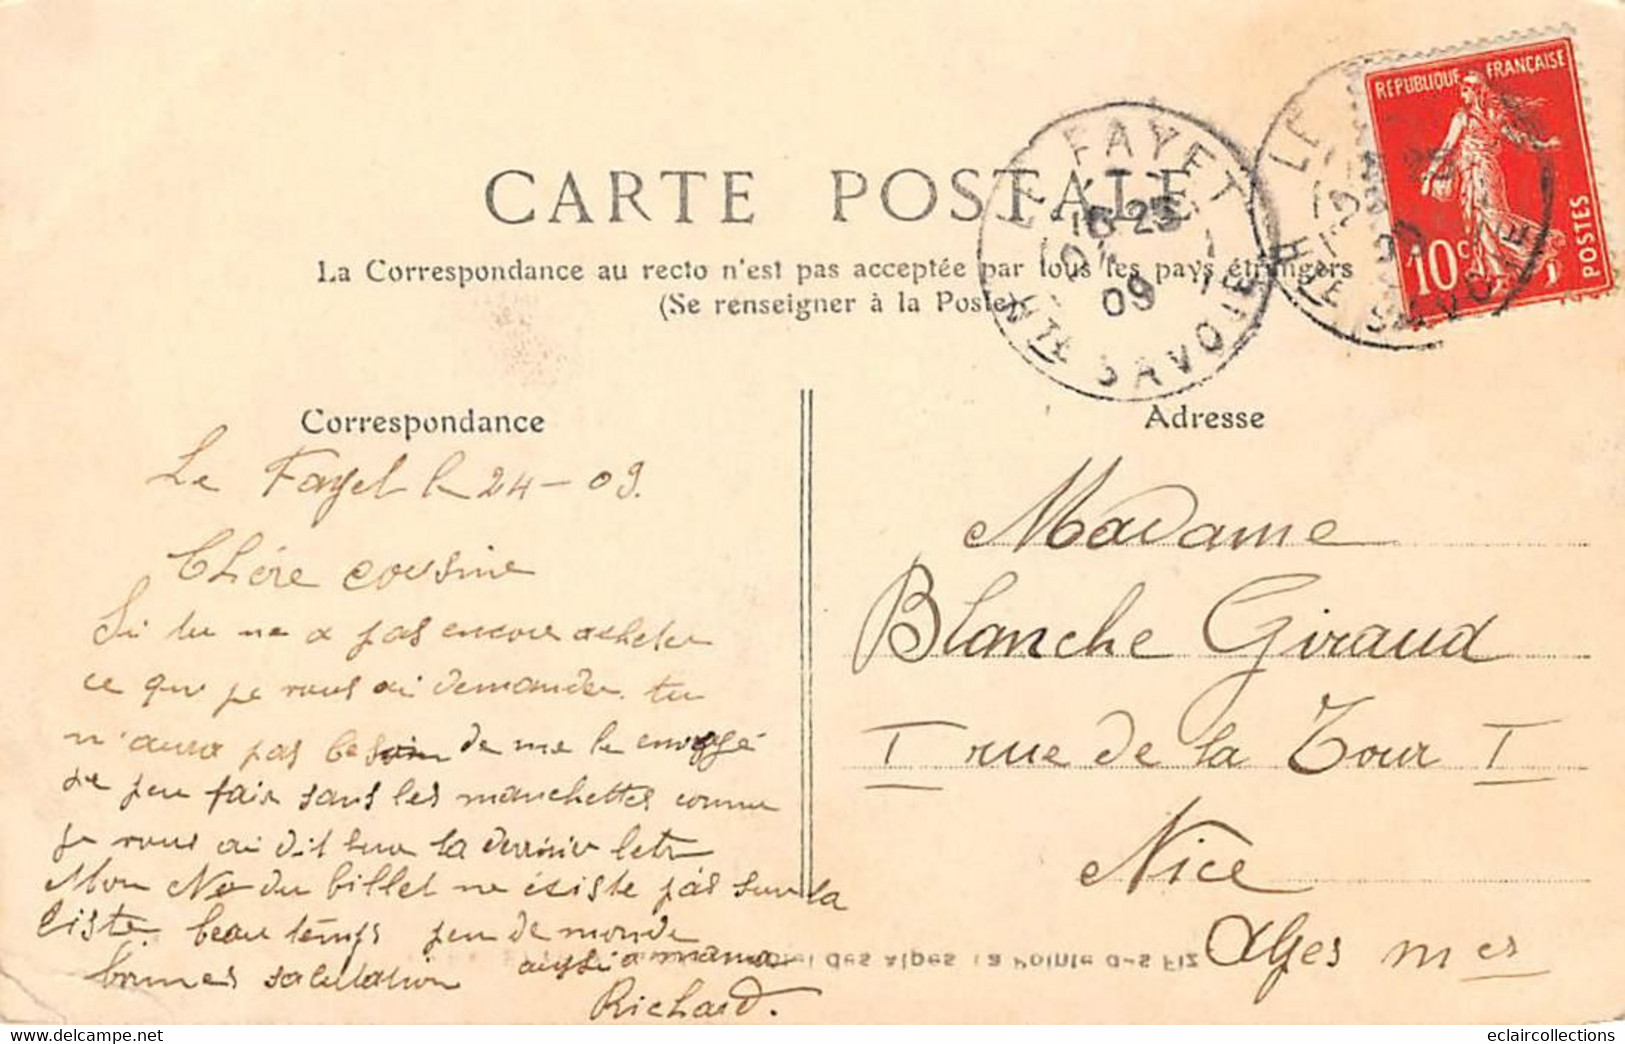 RÉPUBLIQUE FRANÇAISE
10c POSTES
LE FAYET
25
09
HTE SAVOIE
LE
HTE SAVOIE
CARTE POSTALE
La Correspondance au recto n'est pas acceptée par tous les pays étrangers
(Se renseigner à la Poste)
Correspondance
Le Fayet le 24-09.
Chére cousine
Si tu ne a pas encore acheter
ce que je vous ai demander tu
n'aura pas besoin de me le envoyé
je peu fair sans les manchettes comme
je vous ai dit sur la dernier letr
Mon No du billet ne éxiste pas sur la
Liste. beau temps peu de monde
bonnes salutation aussi a mama
Richard.
Adresse
Madame
Blanche Giraud
I rue de la Tour I
Nice
Alpes mes
des Alpes La Pointe des Fiz
eclaircollections